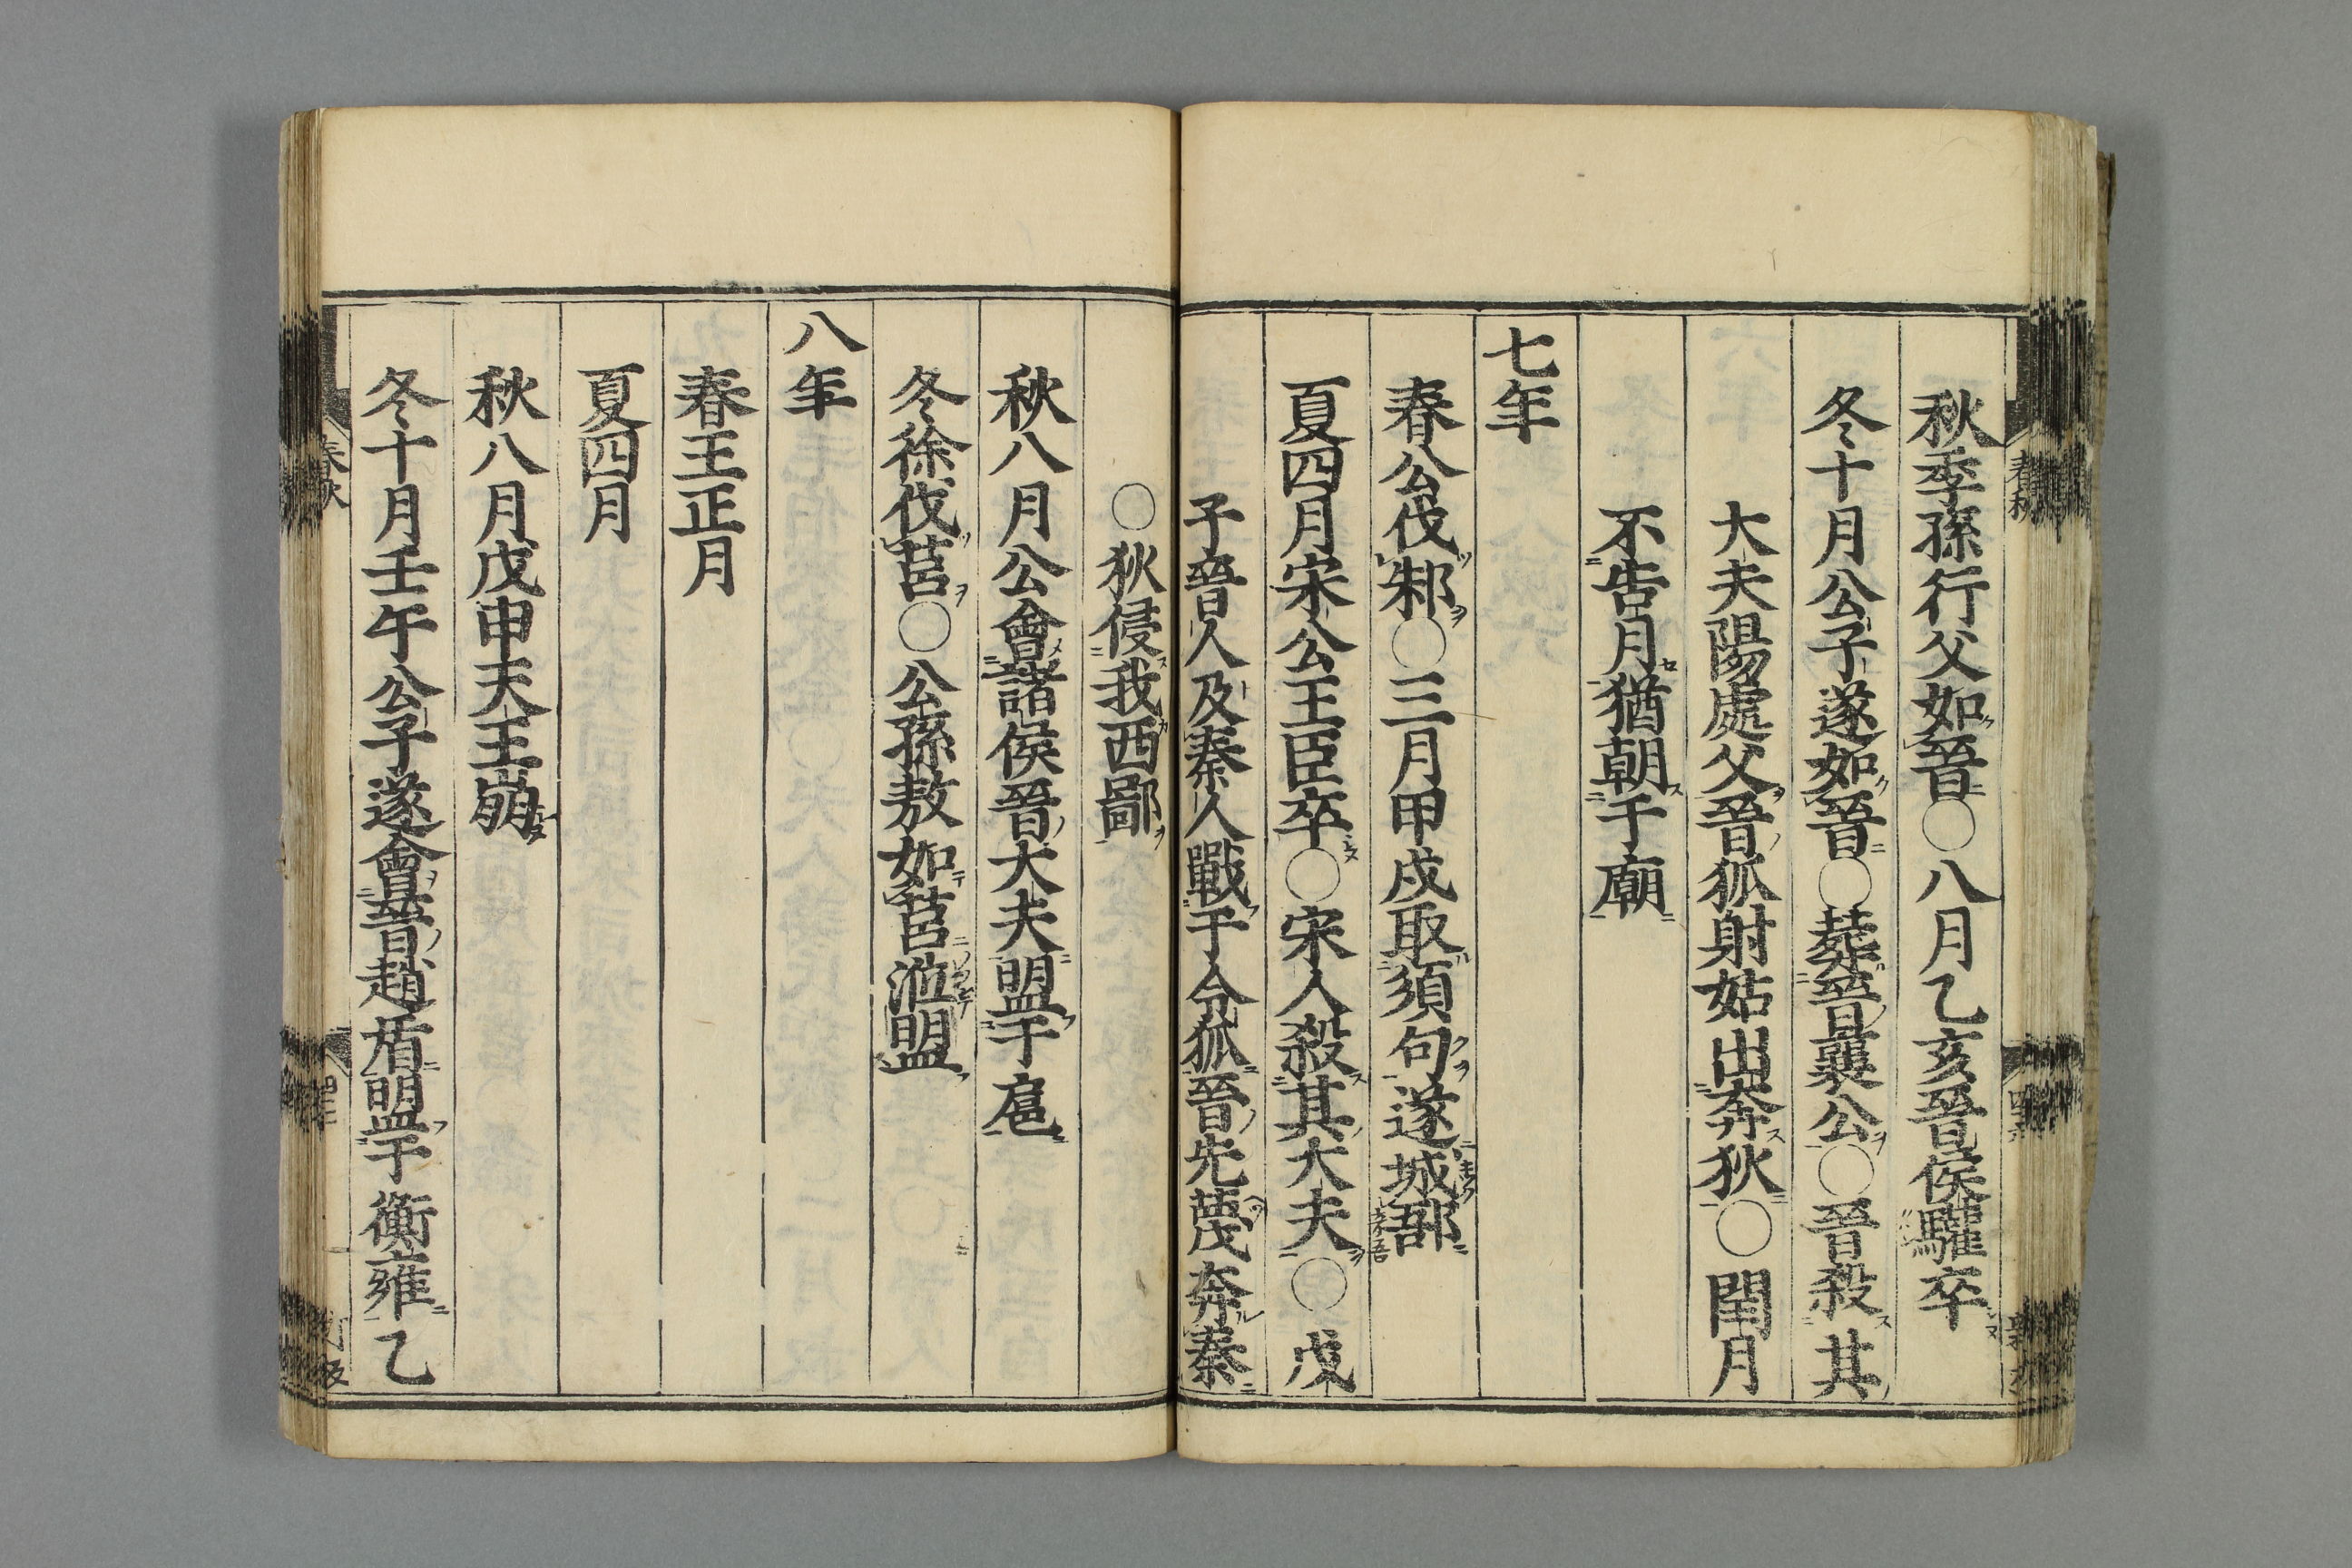 秋季孫行父如晉〇八月乙亥晉侯驩卒
冬十月公子遂如晉〇葬晉襄公〇晉殺其
大夫陽處父晉狐射姑出奔狄〇閏月
不告月猶朝于廟
七年
春公伐邾〇三月甲戌取須句遂城郚
夏四月宋公王臣卒〇宋人殺其大夫〇戊
子晉人及秦人戰于令狐晉先蔑奔秦
〇狄侵我西鄙
秋八月公會諸侯晉大夫盟于扈
冬徐伐莒〇公孫敖如莒涖盟
八年
春王正月
夏四月
秋八月戊申天王崩
冬十月壬午公子遂會晉趙盾盟于衡雍乙
春秋